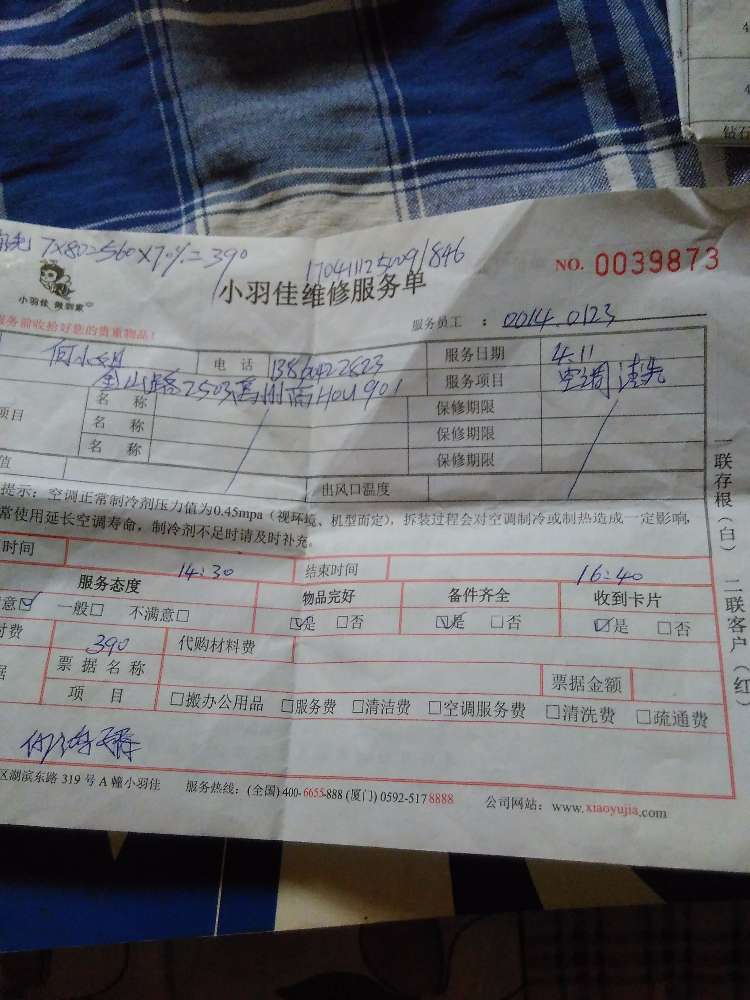 7×80=560×70%=390
170411125091846
NO. 0039873
小羽佳 做到家
小羽佳维修服务单
服务前收拾好您的贵重物品!
服务员工 : 0014.0123
何小姐 电 话 服务日期 4.11
金山路2503 901 服务项目 空调清洗
项目 名 称 保修期限
名 称 保修期限
名 称 保修期限
值 出风口温度
提示:空调正常制冷剂压力值为0.45mpa(视环境、机型而定),拆装过程会对空调制冷或制热造成一定影响,
常使用延长空调寿命,制冷剂不足时请及时补充。
时间 14:30 结束时间 16:40
服务态度 物品完好 备件齐全 收到卡片
意☑ 一般□ 不满意□ ☑是 □否 ☑是 □否 ☑是 □否
付费 390 代购材料费
据 票据名称 票据金额
项 目 □搬办公用品 □服务费 □清洁费 □空调服务费 □清洗费 □疏通费
区湖滨东路 319 号 A 幢小羽佳 服务热线:(全国) 400-6655-888 (厦门) 0592-517 8888 公司网站:www.xiaoyujia.com
一联存根(白) 二联客户(红)
4
4
钻石